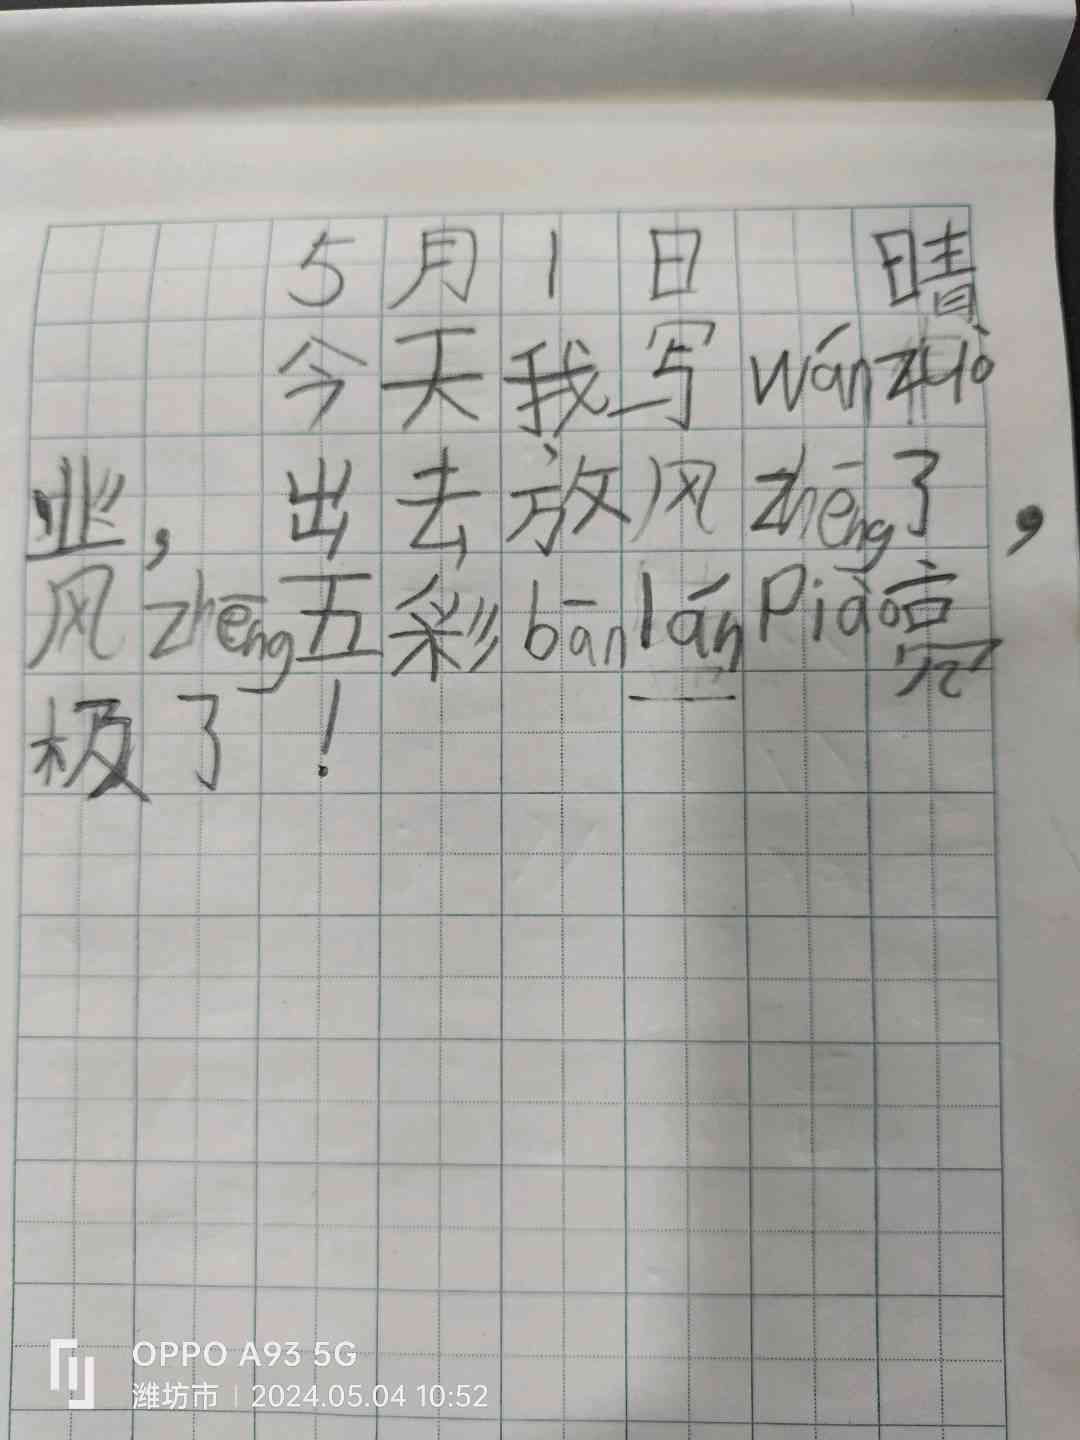 5月1日 晴
今天我写wánzuò
业，出去放风zhēng了，
风zhēng五彩bānlánPiào亮
极了！
OPPO A93 5G
潍坊市 | 2024.05.04 10:52